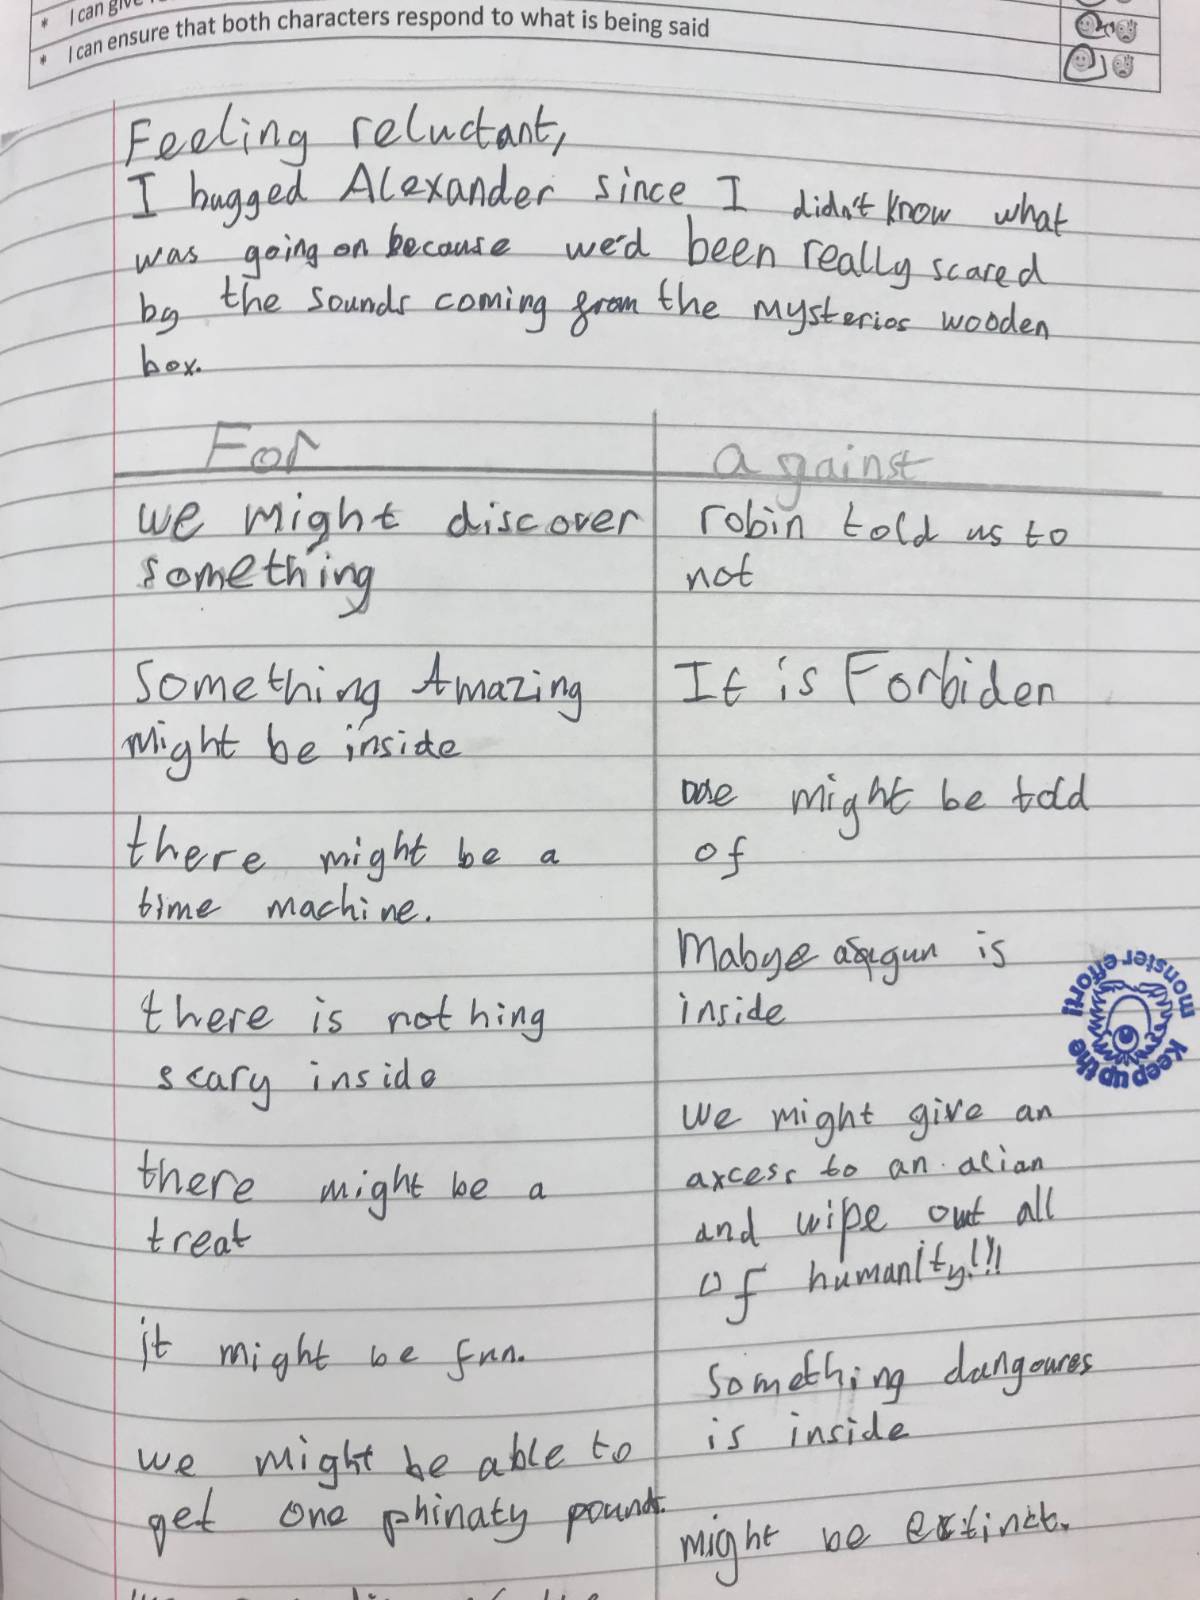 * I can give
* I can ensure that both characters respond to what is being said
Feeling reluctant,
I hugged Alexander since I didn't know what
was going on because we'd been really scared
by the sounds coming from the mysterios wooden
box.
For
we might discover
something
Something Amazing
might be inside
there might be a
time machine.
there is nothing
scary inside
there might be a
treat
it might be fun.
we might be able to
get one phinaty pounds.
against
robin told us to
not
It is Forbiden
we might be told
of
Mabye a gun is
inside
we might give an
axcess to an alian
and wipe out all
of humanity!!!
Something dangoures
is inside
might be extinct.
Keep up the
monster effort!